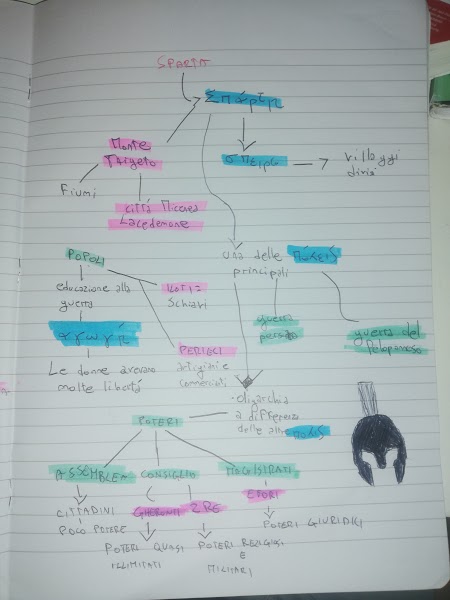 SPARTA
Σπάρτη
Monte
Taigeto
σπείρω
villaggi
divisi
Fiumi
città Micenea
Lacedemone
POPOLI
una delle πόλεις
principali
educazione alla
guerra
ILOTI =
Schiavi
guerra
persiana
guerra del
Peloponneso
αγωγή
PERIECI
artigiani e
commercianti
Le donne avevano
molte libertà
• oligarchia
a differenza
delle altre πόλεις
POTERI
ASSEMBLEA
CONSIGLIO
MAGISTRATI
CITTADINI
GHERONTI
2 RE
EFORI
POCO POTERE
POTERI GIURIDICI
POTERI QUASI
ILLIMITATI
POTERI RELIGIOSI
E
MILITARI